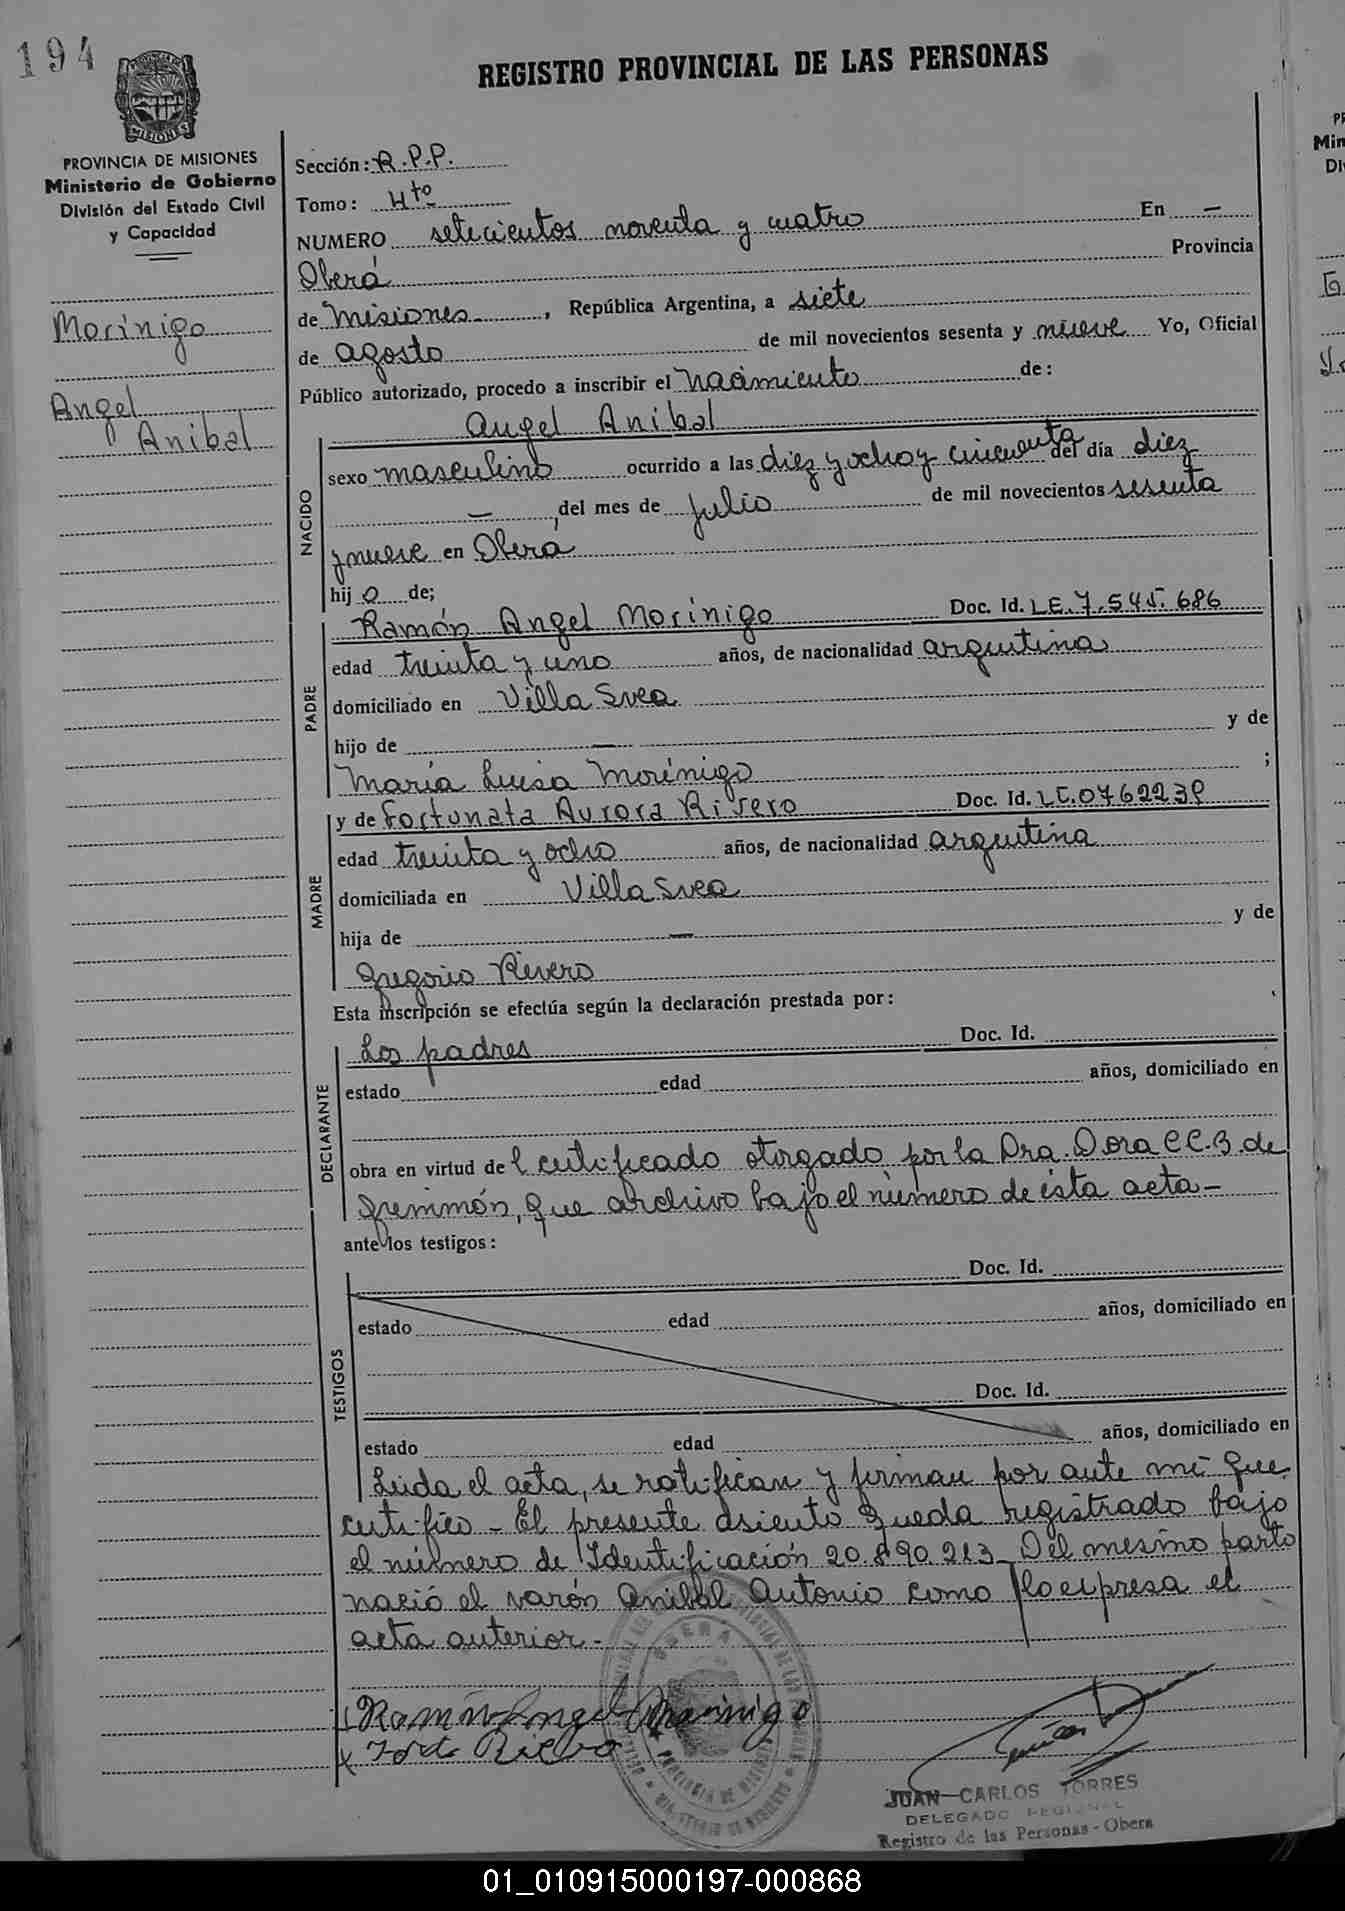 194
REGISTRO PROVINCIAL DE LAS PERSONAS
MISIONES
PROVINCIA DE MISIONES
Ministerio de Gobierno
División del Estado Civil
y Capacidad
Morinigo
Angel
Anibal
Sección: R.P.P.
Tomo: 4to
NUMERO setecientos noventa y cuatro En —
Oberá Provincia
de Misiones, República Argentina, a siete
de agosto de mil novecientos sesenta y nueve Yo, Oficial
Público autorizado, procedo a inscribir el nacimiento de:
NACIDO
Angel Anibal
sexo masculino ocurrido a las diez y ocho y cincuenta del día diez
— del mes de julio de mil novecientos sesenta
y nueve en Oberá
hijo de;
PADRE
Ramón Angel Morinigo Doc. Id. LE. 7.545.686
edad treinta y uno años, de nacionalidad argentina
domiciliado en Villa Svea
hijo de — y de
María Luisa Morinigo ;
MADRE
y de Fortunata Aurora Rivero Doc. Id. LC.
edad treinta y ocho años, de nacionalidad argentina
domiciliada en Villa Svea
hija de — y de
Gregorio Rivero
Esta inscripción se efectúa según la declaración prestada por:
DECLARANTE
Los padres Doc. Id.
estado edad años, domiciliado en
obra en virtud del certificado otorgado por la Dra. Dora de
que archivo bajo el número de ésta acta-
ante los testigos:
TESTIGOS
Doc. Id.
estado edad años, domiciliado en
Doc. Id.
estado edad años, domiciliado en
Leida el acta, se ratifican y firman por ante mi que
certifico - El presente asiento queda registrado bajo
el número de Identificación 20.890.213- Del mesmo parto
nació el varón Anibal Antonio como lo expresa el
acta anterior.-
Ramón Angel Morinigo
Rivero
OBERA
JUAN CARLOS TORRES
DELEGADO REGIONAL
Registro de las Personas - Obera
01_010915000197-000868